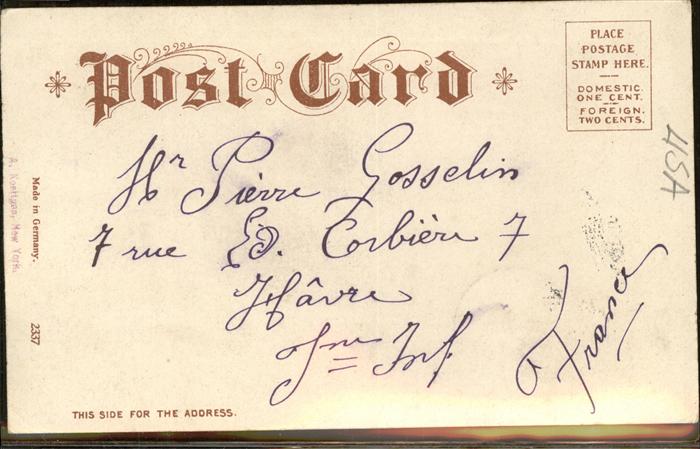 Post Card
PLACE
POSTAGE
STAMP HERE.
DOMESTIC.
ONE CENT.
FOREIGN.
TWO CENTS.
USA
Mr Pierre Gosselin
7 rue Ed. Corbière 7
Hâvre
Sne Inf
France
A. Koettgen, New York.
Made in Germany.
2337
THIS SIDE FOR THE ADDRESS.